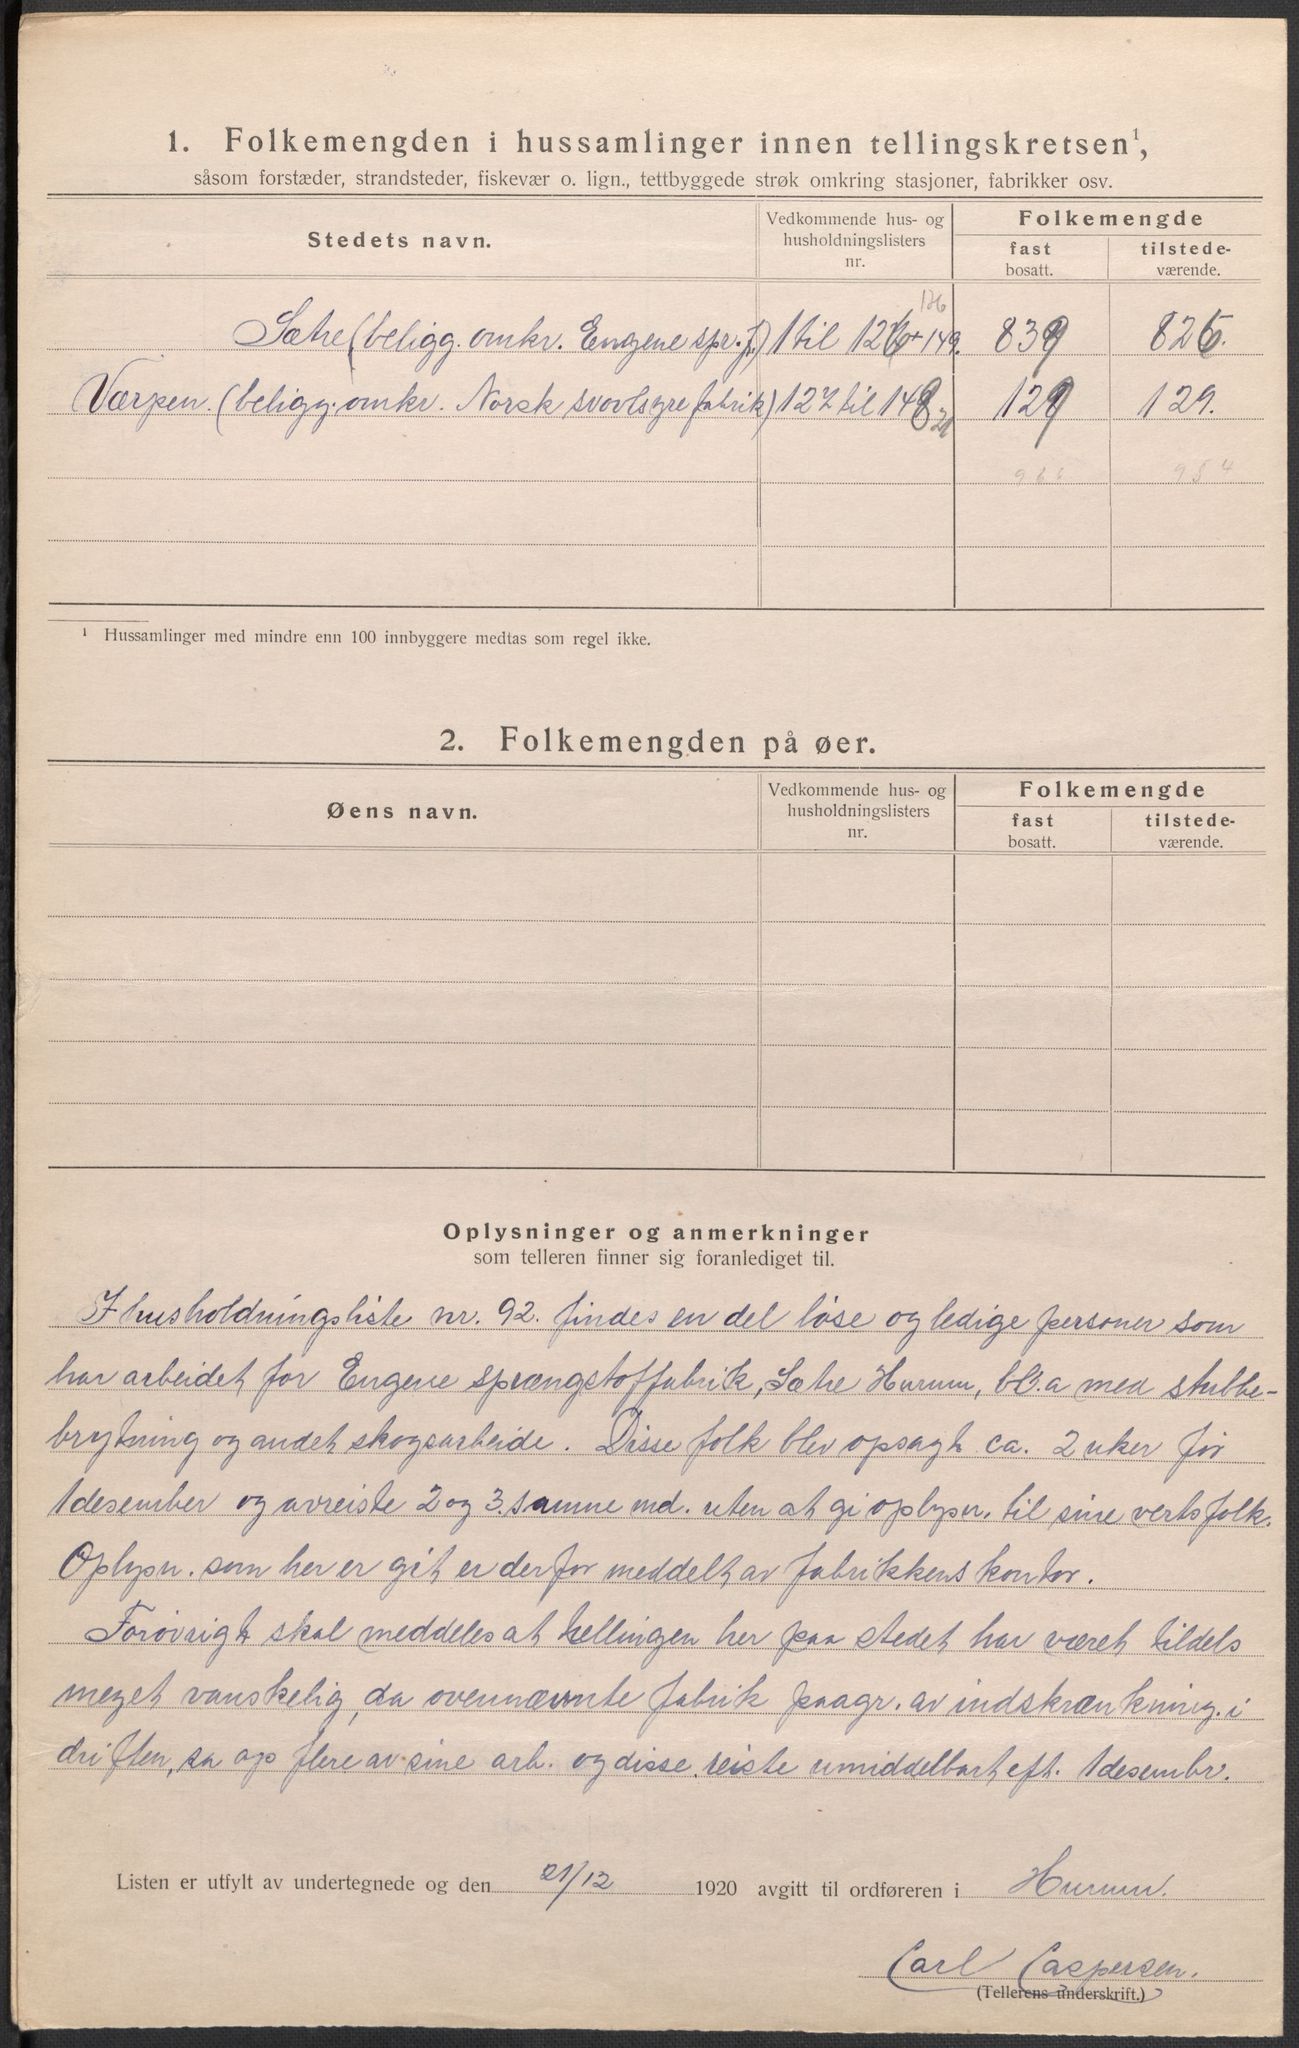 1. Folkemengden i hussamlinger innen tellingskretsen¹,
såsom forstæder, strandsteder, fiskevær o. lign., tettbyggede strøk omkring stasjoner, fabrikker osv.
Stedets navn. Vedkommende hus- og husholdningslisters nr. Folkemengde
fast bosatt. tilstede-værende.
126
Sætre (beligg. omkr. Engene spr.f.) 1 til 126 + 149. 839 825.
Værpen. (beligg. omkr. Norsk svovlsyrefabrik) 127 til 148 21 129 129.
954
¹ Hussamlinger med mindre enn 100 innbyggere medtas som regel ikke.
2. Folkemengden på øer.
Øens navn. Vedkommende hus- og husholdningslisters nr. Folkemengde
fast bosatt. tilstede-værende.
Oplysninger og anmerkninger
som telleren finner sig foranlediget til.
I husholdningsliste nr. 92. findes en del løse og ledige personer som
har arbeidet for Engene sprængstoffabrik, Sætre Hurum, bl.a med stubbe-
brytning og andet skogsarbeide. Disse folk blev opsagt ca. 2 uker før
1 desember og avreiste 2 og 3. samme md. uten at gi oplysn. til sine vertsfolk.
Oplysn. som her er git er derfor meddelt av fabrikkens kontor.
Forøvrigt skal meddeles at tellingen her paa stedet har været tildels
meget vanskelig, da ovennævnte fabrik paagr. av indskrænkning. i
driften, sa op flere av sine arb. og disse reiste umiddelbart eft. 1 desembr.
Listen er utfylt av undertegnede og den 21/12 1920 avgitt til ordføreren i Hurum.
Carl Caspersen.
(Tellerens underskrift.)